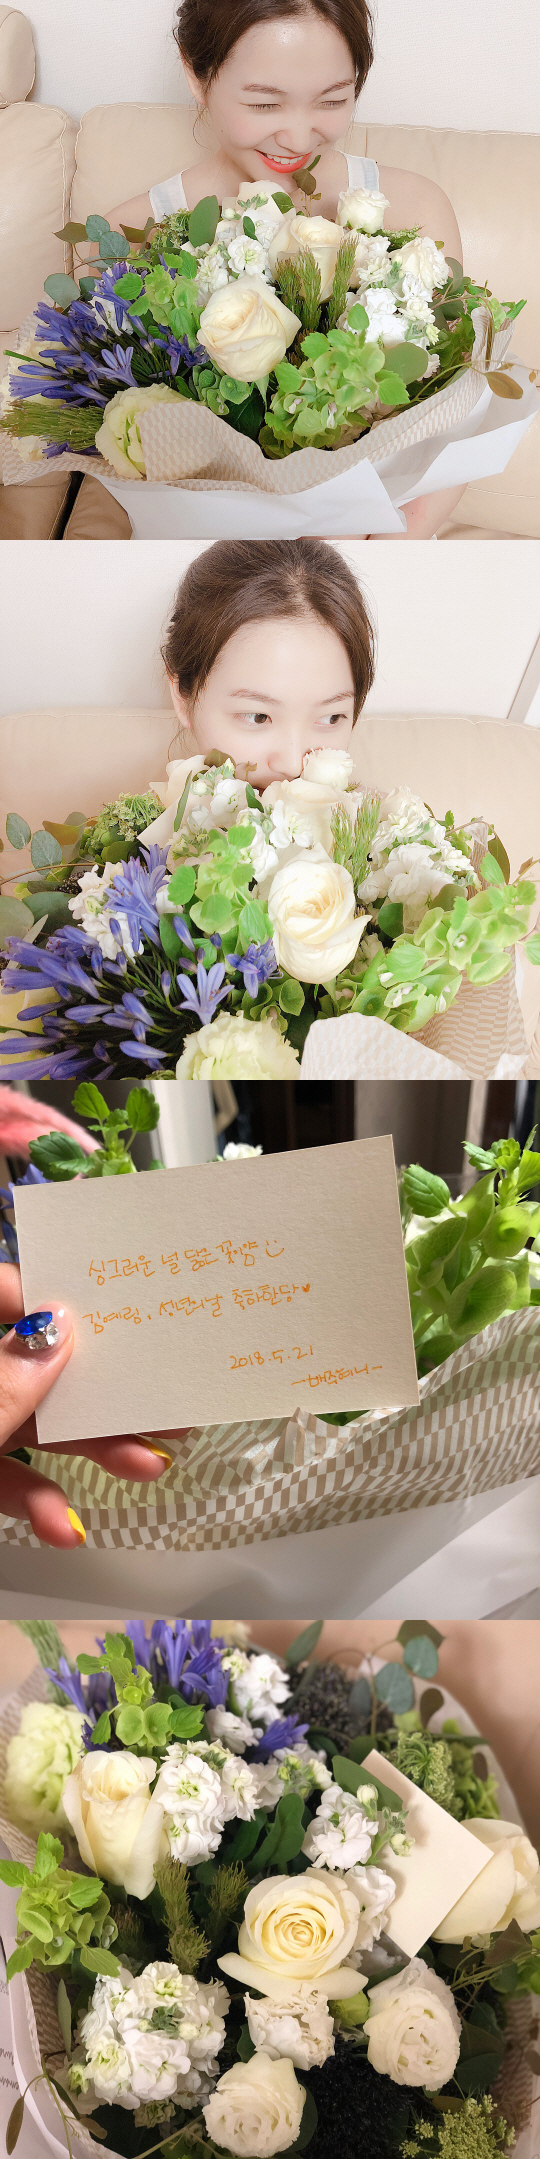 싱그러운 널 닮은 꽃이양
김예림, 성년의날 축하한당♥
2018.5.21
-배주혀니-